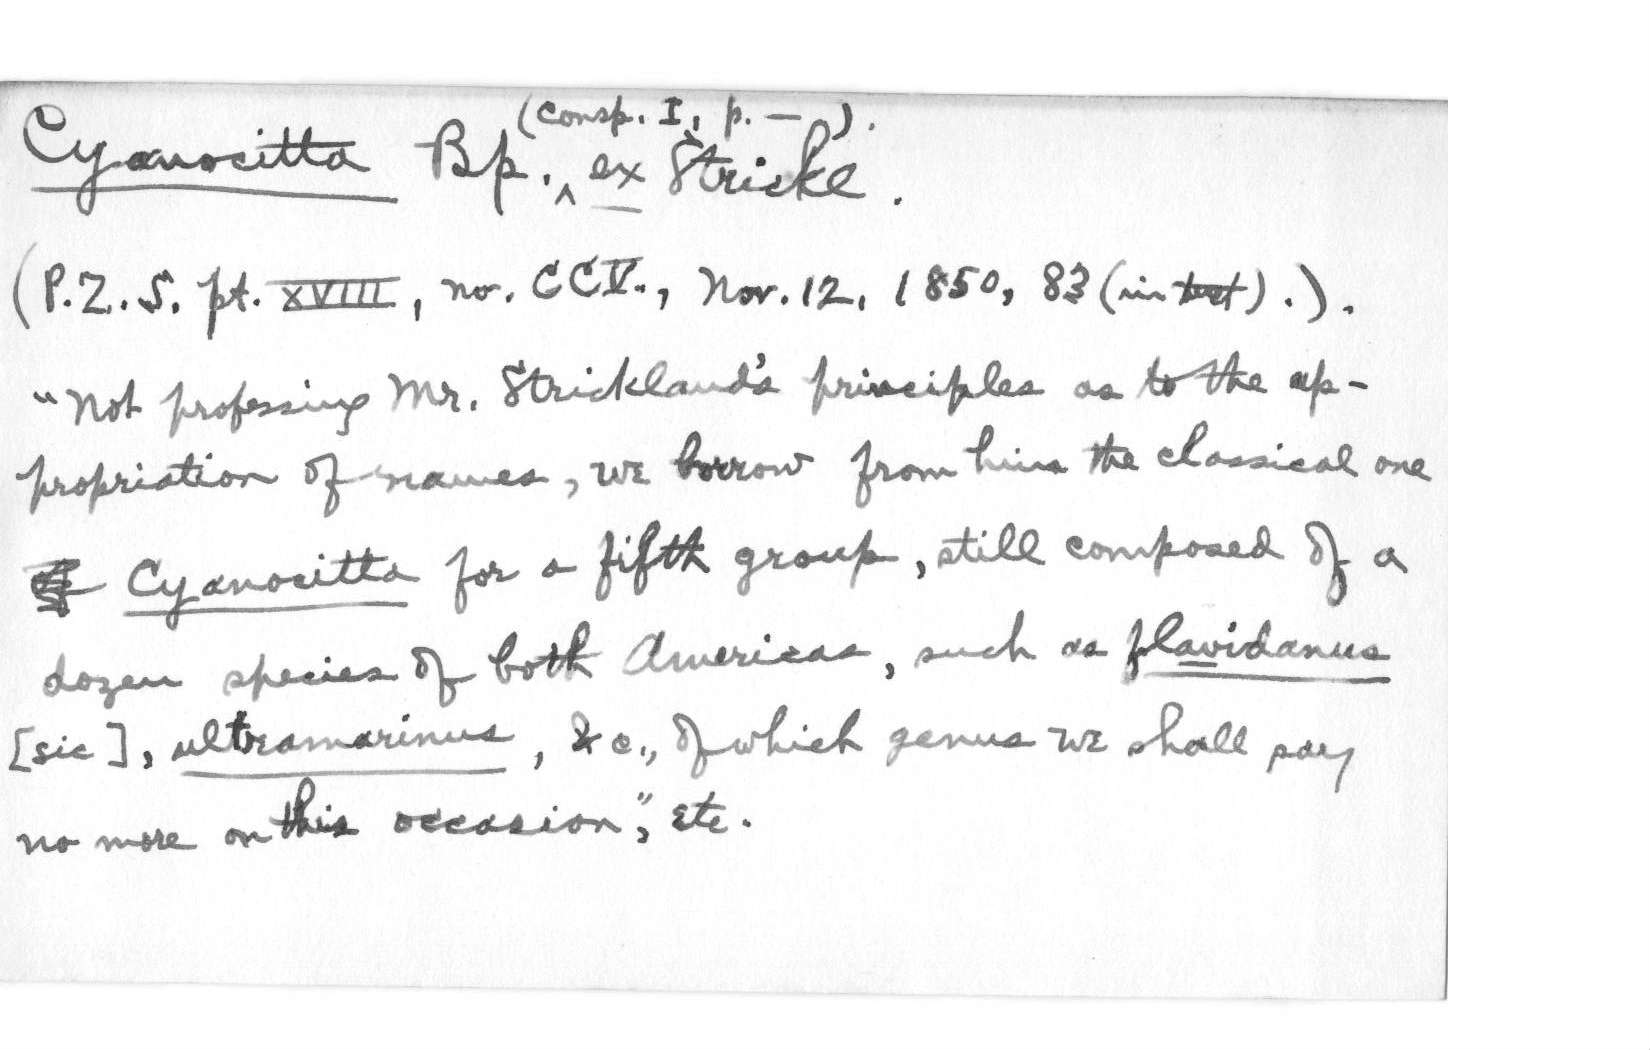 (Consp. I, p. — ).
Cyanocitta Bp. ^ ex Strickl.
(P.Z.S. pt. XVIII, no. CCV., Nov. 12, 1850, 83 (in text).).
"Not professing Mr. Strickland's principles as to the ap-
propriation of names, we borrow from him the classical one
Cyanocitta for a fifth group, still composed of a
dozen species of both Americas, such as flavidanus
[sic], ultramarinus, &c., of which genus we shall say
no more on this occasion", etc.